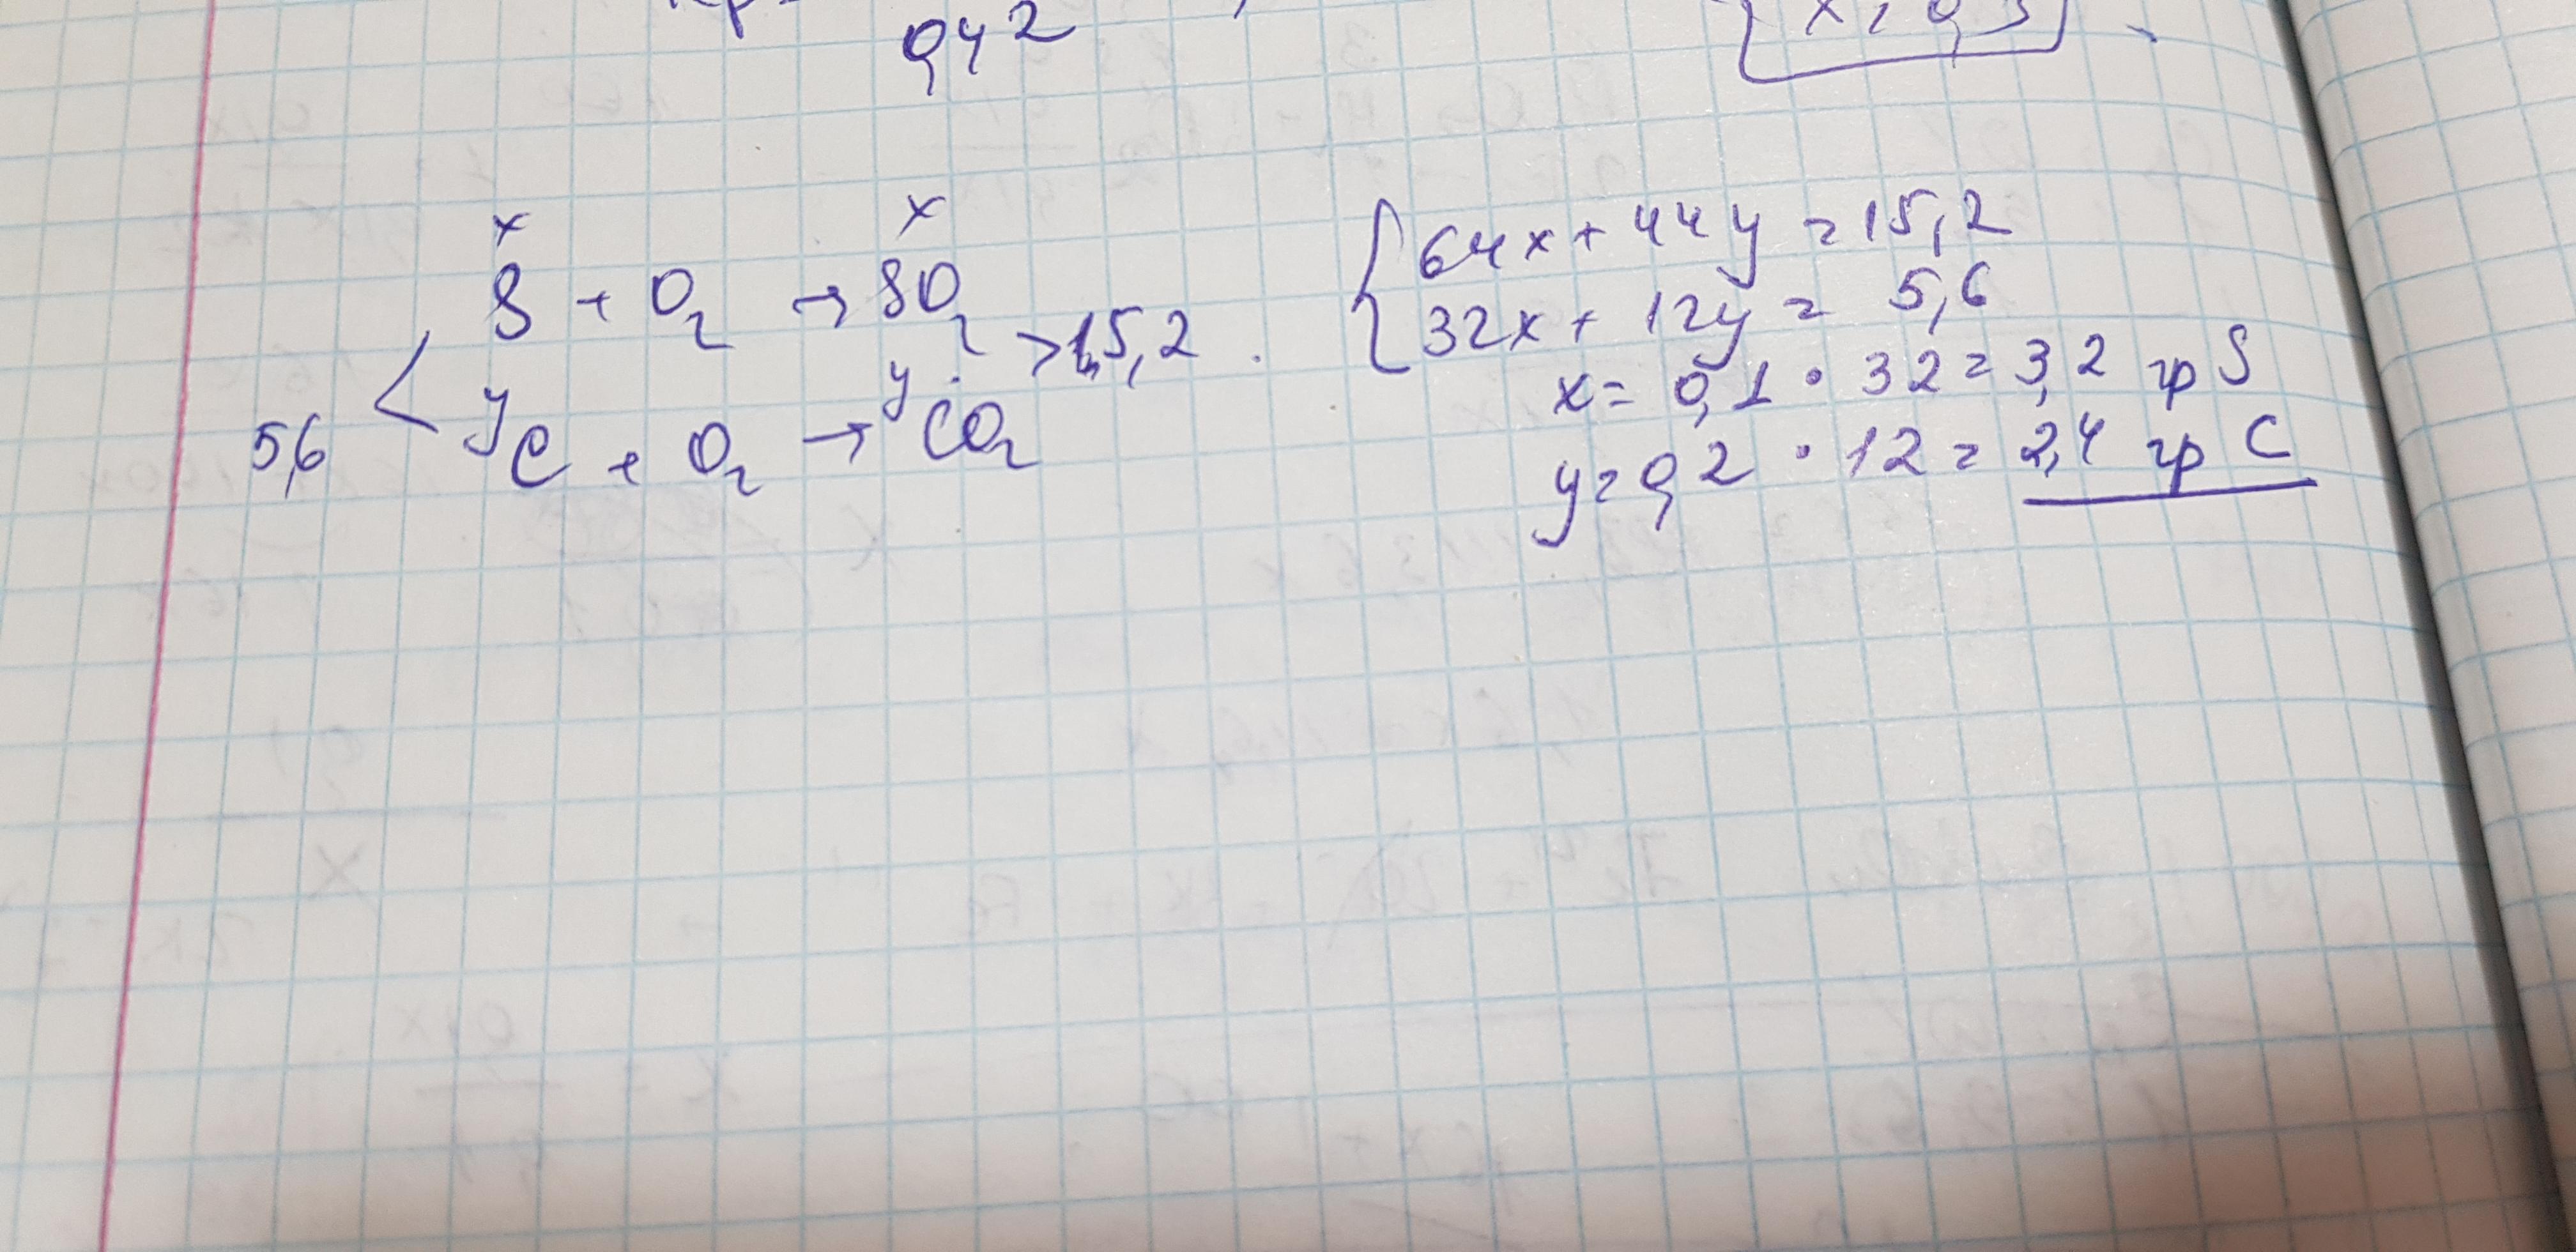 0,42
x x
S + O₂ → SO₂
5,6 < > 15,2
y y
C + O₂ → CO₂
{ 64x + 44y = 15,2
32x + 12y = 5,6
x = 0,1 · 32 = 3,2 гр S
y = 0,2 · 12 = 2,4 гр C